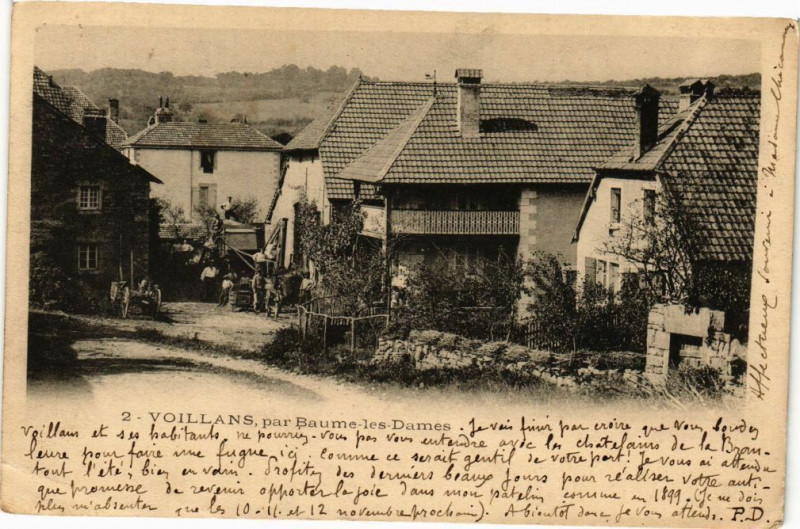 2 - VOILLANS, par Baume-les-Dames. Je vais finir par croire que vous boudez
Voillans et ses habitants, ne pourriez-vous pas vous entendre avec les chatelains de la
leure pour faire une fugue ici. Comme ce serait gentil de votre part! Je vous ai attendu
tout l'été; bien en vain. Profitez des derniers beaux jours pour réaliser votre anti-
que promesse de revenir apporter la joie dans mon patelin comme en 1899. (Je ne dois
plus m'absenter que les 10-11 et 12 novembre prochain). A bientôt donc, je vous attends. P.D
Affectueux souvenir à Madame